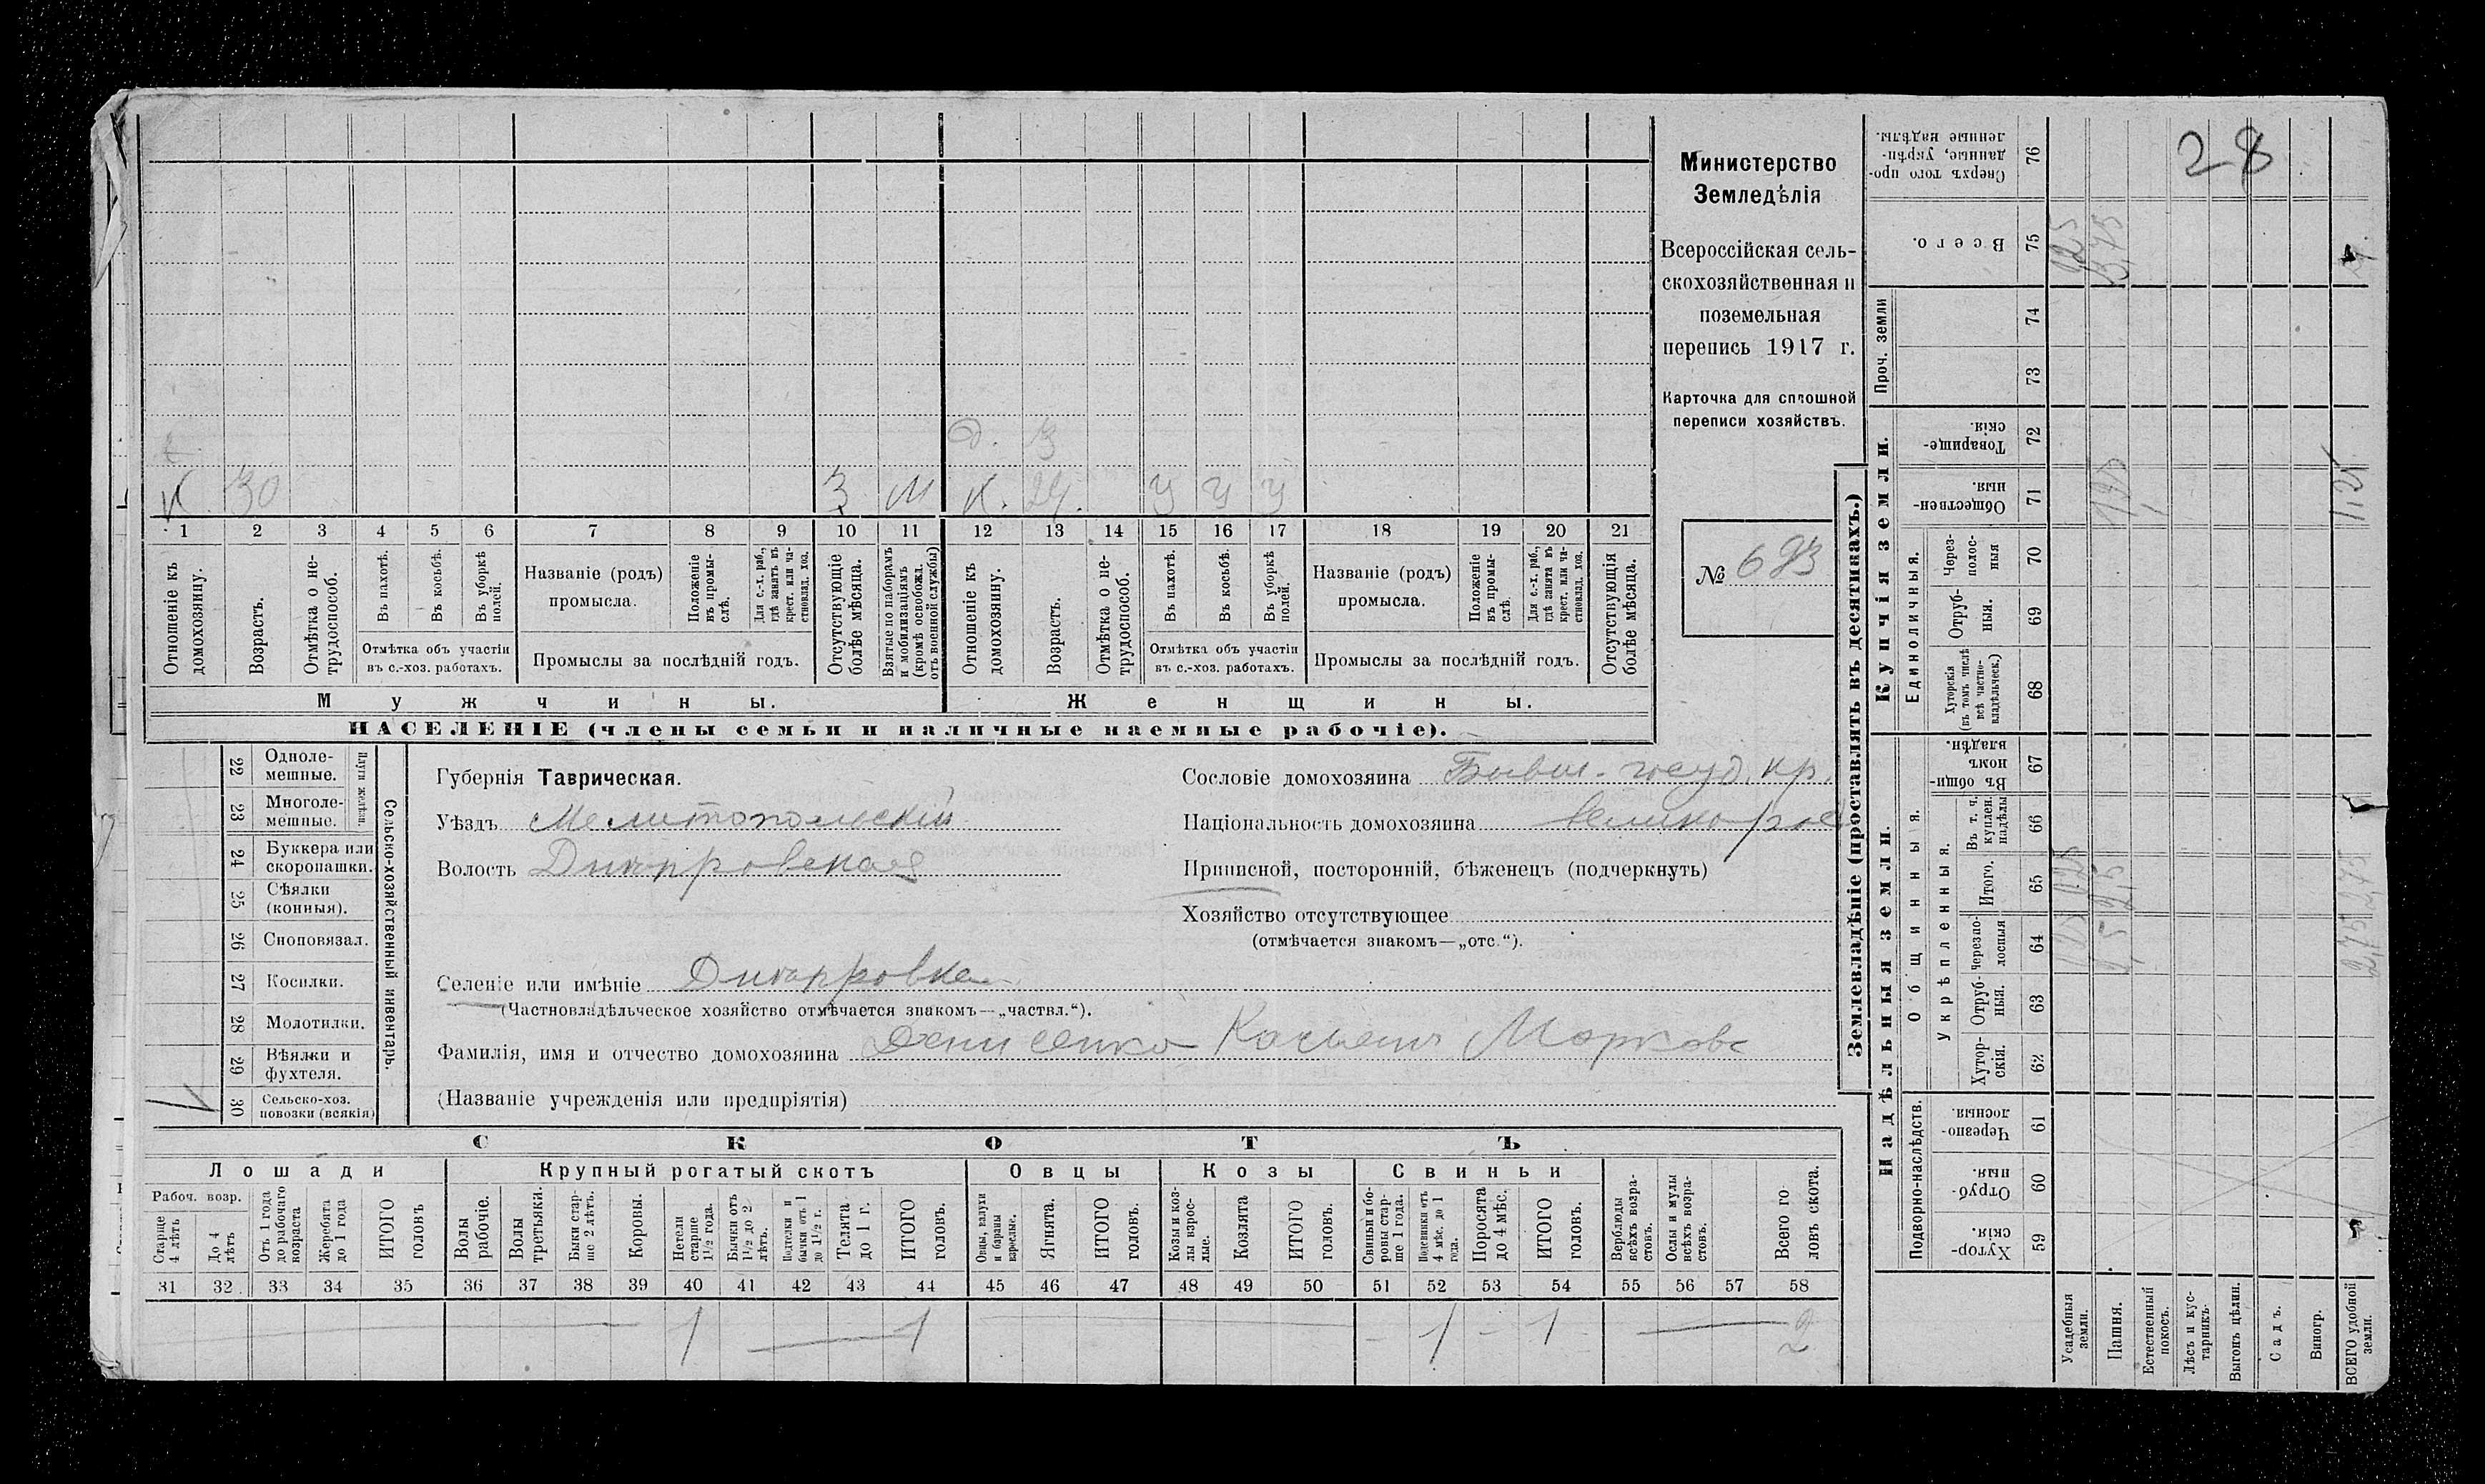 Министерство
Земледѣлія
Всероссійская сель-
скохозяйственная и
поземельная
перепись 1917 г.
Карточка для сплошной
переписи хозяйствъ.
№ 683
28
д. 3
К 30 3 М К. 24. У У У
1 2 3 4 5 6 7 8 9 10 11 12 13 14 15 16 17 18 19 20 21
Отношеніе къ домохозяину.
Возрастъ.
Отмѣтка о не-трудоспособ.
Въ пахотѣ.
Въ косьбѣ.
Въ уборкѣ полей.
Отмѣтка объ участіи
въ с.-хоз. работахъ.
Названіе (родъ)
промысла.
Положеніе въ промы-слѣ.
Для с.-х. раб., гдѣ занятъ въ крест. или ча-стновлад. хоз.
Промыслы за послѣдній годъ.
Отсутствующіе болѣе мѣсяца.
Взятые по наборамъ и мобилизаціямъ (кромѣ освобожд. отъ военной службы)
Отношеніе къ домохозяину.
Возрастъ.
Отмѣтка о не-трудоспособ.
Въ пахотѣ.
Въ косьбѣ.
Въ уборкѣ полей.
Отмѣтка объ участіи
въ с.-хоз. работахъ.
Названіе (родъ)
промысла.
Положеніе въ промы-слѣ.
Для с.-х. раб., гдѣ занята въ крест. или ча-стновлад. хоз.
Промыслы за послѣдній годъ.
Отсутствующія болѣе мѣсяца.
Мужчины.
Женщины.
НАСЕЛЕНІЕ (члены семьи и наличные наемные рабочіе).
22 Одноле-
мешные.
23 Многоле-
мешные.
Плуги желѣзн.
24 Буккера или
скоропашки.
25 Сѣялки
(конныя).
26 Сноповязал.
27 Косилки.
28 Молотилки.
29 Вѣялки и
фухтеля.
30 Сельско-хоз.
повозки (всякія)
Сельско-хозяйственный инвентарь.
Губернія Таврическая.
Уѣздъ Мелитопольскій
Волость Днѣпровская
Сословіе домохозяина Бывш. госуд. кр.
Національность домохозяина великорос
Приписной, посторонній, бѣженецъ (подчеркнуть)
Хозяйство отсутствующее
(отмѣчается знакомъ—„отс.“).
Селеніе или имѣніе Днѣпровка
(Частновладѣльческое хозяйство отмѣчается знакомъ—„частвл.“).
Фамилія, имя и отчество домохозяина Денисенко Касьянъ Марков
(Названіе учрежденія или предпріятія)
СКОТЪ
Лошади
Крупный рогатый скотъ
Овцы
Козы
Свиньи
Рабоч. возр.
Старше 4 лѣтъ
До 4 лѣтъ
Отъ 1 года до рабочаго возраста
Жеребята до 1 года
ИТОГО головъ
Волы рабочіе.
Волы третьяки.
Быки стар-ше 2 лѣтъ.
Коровы.
Нетели старше 1½ года.
Бычки отъ 1½ до 2 лѣтъ.
Подтелки и бычки отъ 1 до 1½ г.
Телята до 1 г.
ИТОГО головъ.
Овцы, валухи и бараны взрослые.
Ягнята.
ИТОГО головъ.
Козы и коз-лы взрос-лые.
Козлята
ИТОГО головъ.
Свиньи и бо-ровы стар-ше 1 года.
Подсвинки отъ 4 мѣс. до 1 года.
Поросята до 4 мѣс.
ИТОГО головъ.
Верблюды всѣхъ возра-стовъ.
Ослы и мулы всѣхъ возра-стовъ.
Всего го ловъ скота.
31 32 33 34 35 36 37 38 39 40 41 42 43 44 45 46 47 48 49 50 51 52 53 54 55 56 57 58
1 1 1 1 2
Землевладѣніе (проставлять въ десятинахъ.)
Надѣльныя земли.
Купчія земли.
Проч. земли
Подворно-наслѣдств.
Общинныя.
Укрѣпленныя.
Единоличныя.
Хутор-скія. 59
Отруб-ныя. 60
Черезпо-лосныя. 61
Хутор-скія. 62
Отруб-ныя. 63
Черезпо-лосныя 64
Итого. 65
Въ т. ч. куплен. надѣлы 66
Въ общин-номъ владѣн. 67
Хуторскія (въ томъ числѣ всѣ частно-владѣльческ.) 68
Отруб-ныя. 69
Через-полос-ныя 70
Обществен-ныя. 71
Товарище-скія. 72
73
74
Всего. 75
Сверхъ того про-данные, укрѣп-ленные надѣлы. 76
Усадебныя земли.
Пашня.
Естественный покосъ.
Лѣсъ и кус-тарникъ.
Выгонъ цѣлин.
Садъ.
Виногр.
ВСЕГО удобной земли.
2,75 2,75